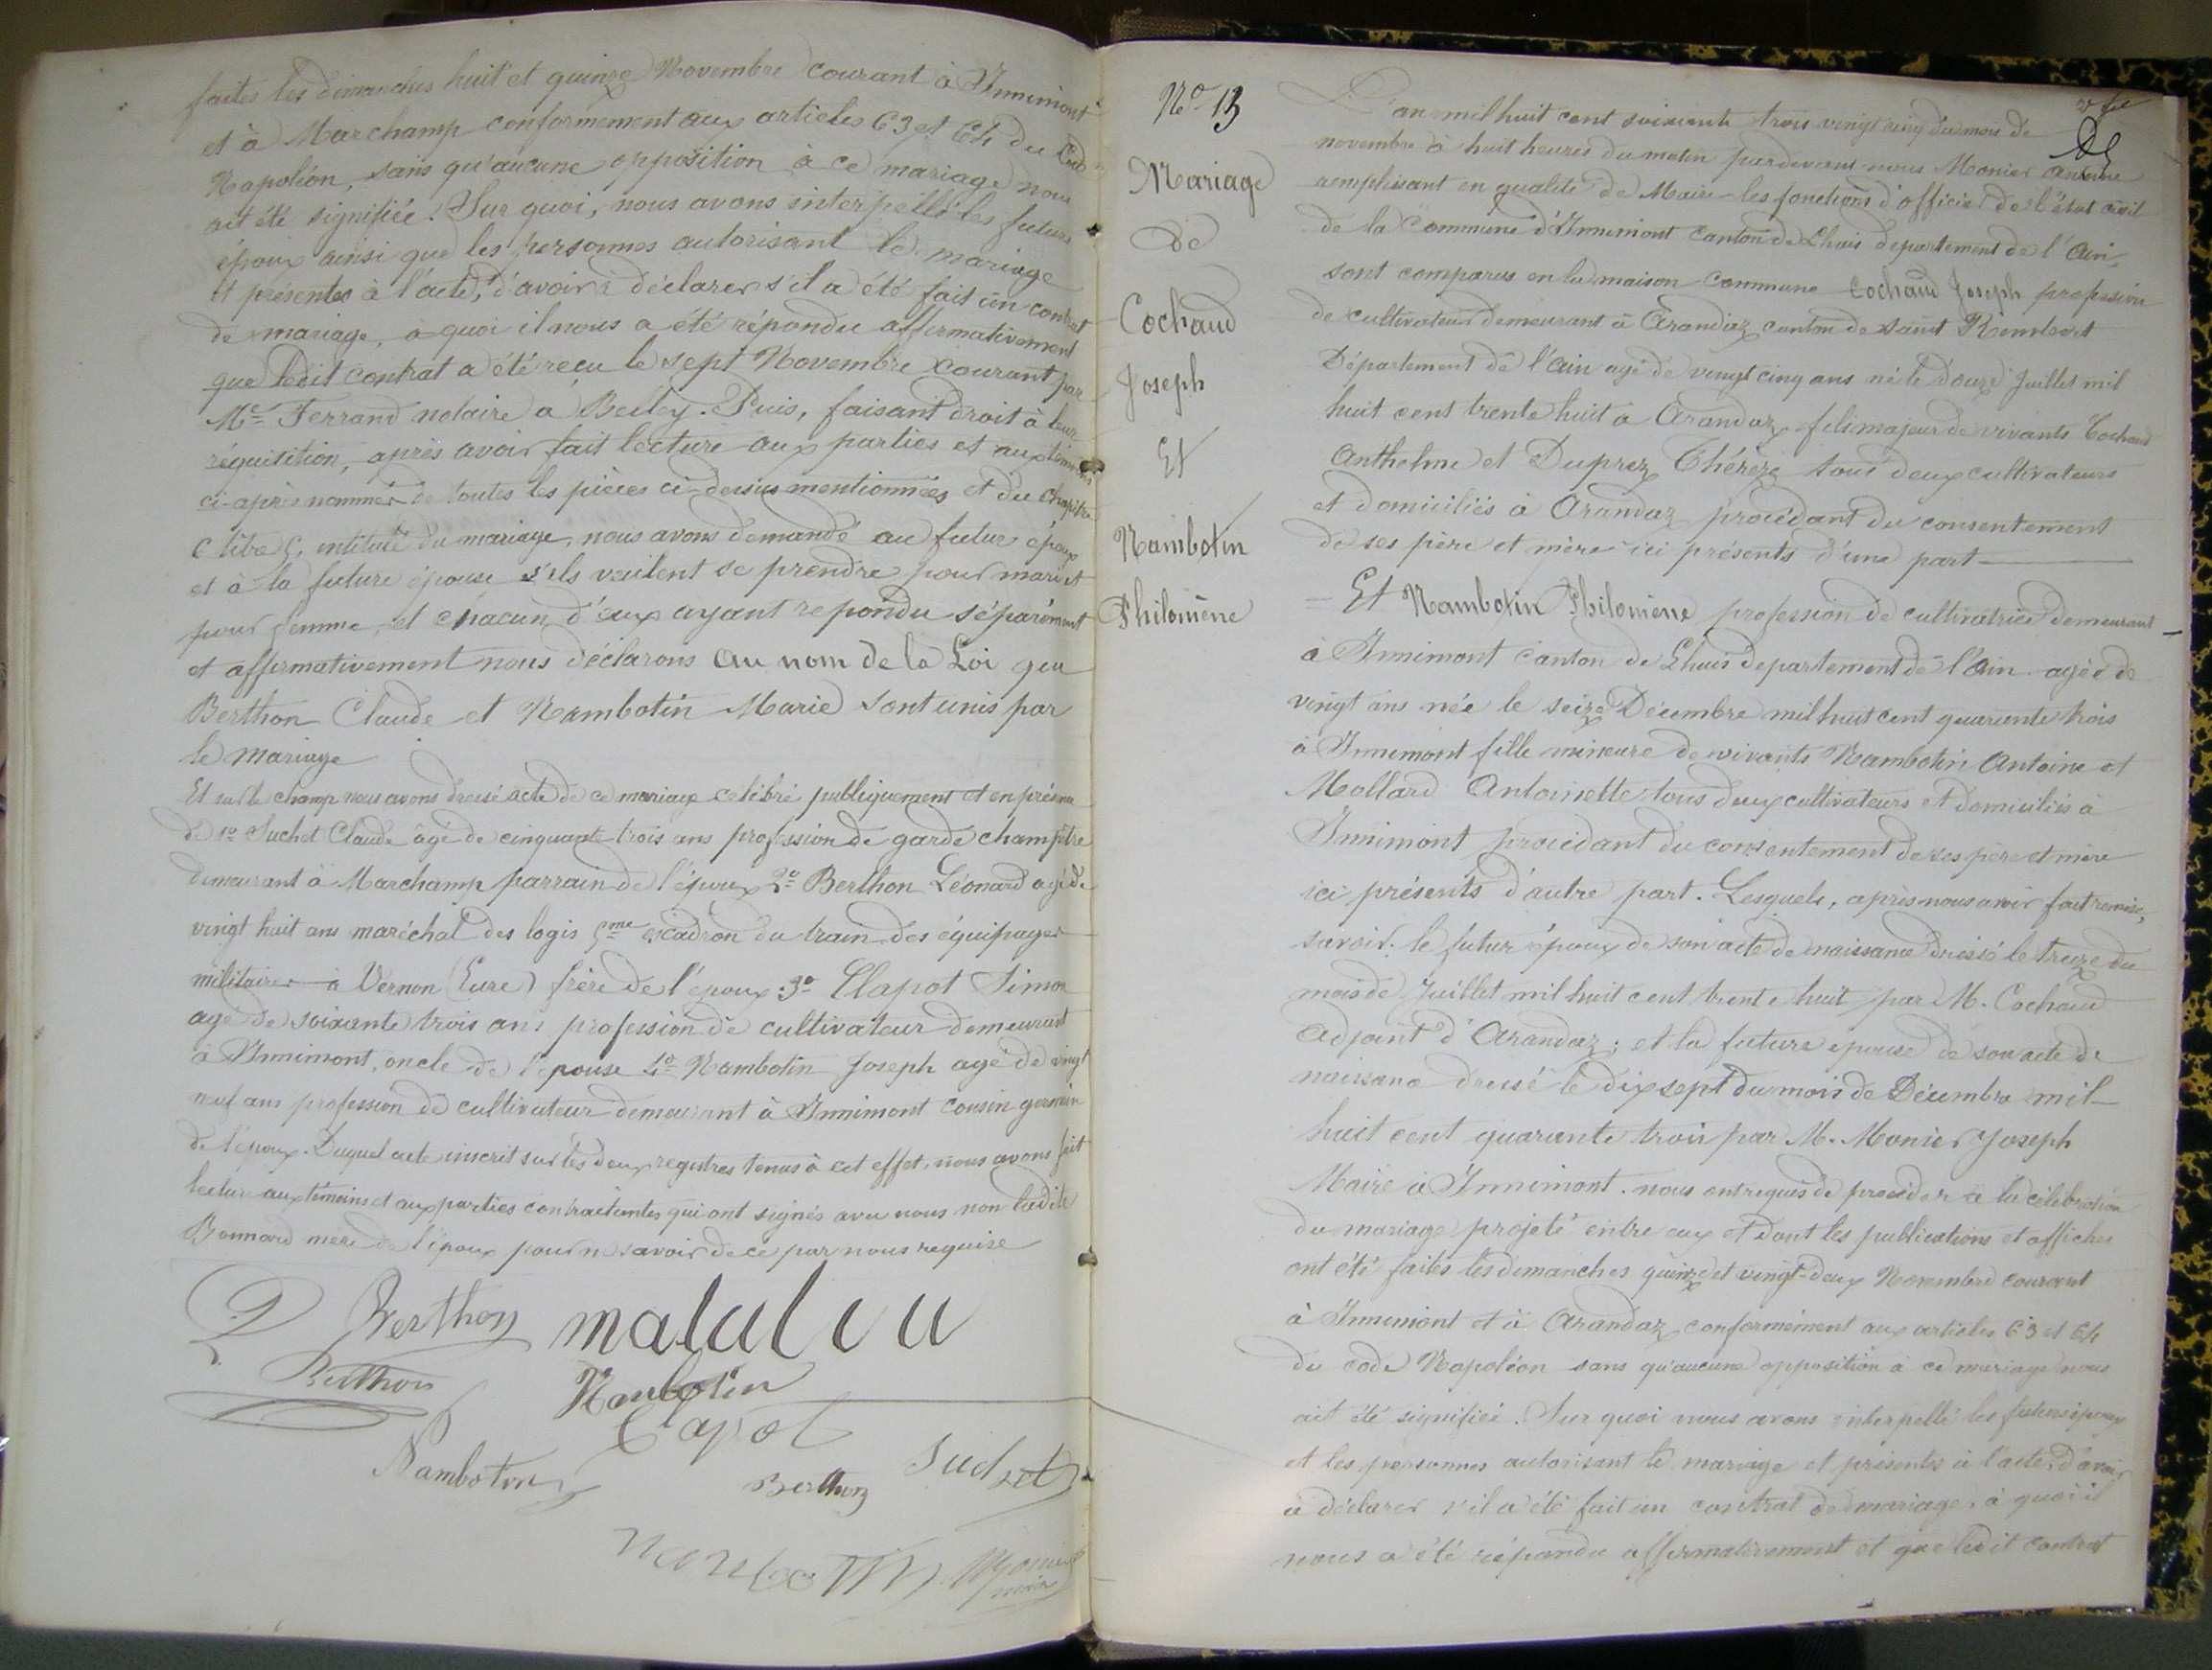 faites les dimanches huit et quinze Novembre courant à Innimont
et à Marchamp conformément aux articles 63 et 64 du Code
Napoléon, sans qu'aucune opposition à ce mariage nous
ait été signifiée. Sur quoi, nous avons interpellé les futurs
époux ainsi que les personnes autorisant le mariage
et présentes à l'acte, d'avoir à déclarer s'il a été fait un contrat
de mariage, à quoi il nous a été répondu affirmativement
que ledit contrat a été reçu le sept Novembre courant par
Me Ferrand notaire à Belley. Puis, faisant droit à leur
réquisition, après avoir fait lecture aux parties et aux témoins
ci-après nommés de toutes les pièces ci-dessus mentionnées et du chapitre
6 titre 5, intitulé du mariage, nous avons demandé au futur époux
et à la future épouse s'ils veulent se prendre pour mari et
pour femme, et chacun d'eux ayant repondu séparément
et affirmativement nous déclarons au nom de la Loi que
Berthon Claude et Nambotin Marie sont unis par
le mariage
Et sur le champ nous avons dressé acte de ce mariage célébré publiquement et en présence
de 1o Suchet Claude âgé de cinquante trois ans profession de garde champêtre
demeurant à Marchamp parrain de l'époux 2o Berthon Léonard agé de
vingt huit ans maréchal des logis 5me escadron du train des équipages
militaires à Vernon (Eure) frère de l'époux. 3o Clapot Simon
agé de soixante trois ans profession de cultivateur demeurant
à Innimont, oncle de l'épouse 4o Nambotin Joseph agé de vingt
neuf ans profession de cultivateur demeurant à Innimont cousin germain
de l'époux. Duquel acte inscrit sur les deux registres tenus à cet effet, nous avons fait
lecture aux témoins et aux parties contractantes qui ont signés avec nous non ladite
Bonnard mère de l'époux pour n savoir de ce par nous requise
Berthon
Berthon
Nambotin
Clapot
Nambotin
Berthon
Suchet
Nambotin
Monier
maire
No 13
Mariage
de
Cochaud
Joseph
Et
Nambotin
Philomène
L'an mil huit cent soixante trois vingt cinq du mois de
novembre à huit heures du matin pardevant nous Monier Antoine
remplissant en qualité de Maire les fonctions d'officier de l'état civil
de la Commune d'Innimont canton de Lhuis departement de l'Ain,
sont comparus en la maison commune Cochaud Joseph profession
de cultivateur demeurant à Arandaz canton de saint Rembert
Département de l'Ain agé de vingt cinq ans né le douze Juillet mil
huit cent trente huit à Arandaz fils majeur de vivants Cochaud
Anthelme et Duprez Thérèze tous deux cultivateurs
et domiciliés à Arandaz procédant du consentement
de ses père et mère ici présents d'une part
Et Nambotin Philomène profession de cultivatrice demeurant
à Innimont canton de Lhuis departement de l'Ain agée de
vingt ans née le seize Décembre mil huit cent quarante trois
à Innimont fille mineure de vivants Nambotin Antoine et
Mollard Antoinette tous deux cultivateurs et domiciliés à
Innimont procédant du consentement de ses père et mère
ici présents d'autre part. Lesquels, après nous avoir fait remise,
savoir: le futur époux de son acte de naissance dressé le treize du
mois de Juillet mil huit cent trente huit par M. Cochaud
adjoint d'Arandaz; et la future epouse de son acte de
naissance dressé le dix sept du mois de Décembre mil
huit cent quarante trois par M. Monier Joseph
Maire à Innimont. nous ont requis de proceder à la célébration
du mariage projeté entre eux et dont les publications et affiches
ont été faites les dimanches quinze et vingt-deux Novembre courant
à Innimont et à Arandaz conformément aux articles 63 et 64
du code Napoléon sans qu'aucune opposition à ce mariage nous
ait été signifiée. Sur quoi nous avons interpellé les futurs époux
et les personnes autorisant le mariage et présentes à l'acte, d'avoir
à déclarer s'il a été fait un contrat de mariage, à quoi il
nous a été répondu affirmativement et que ledit contrat